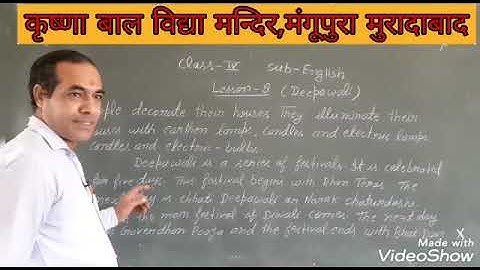 कृष्णा बाल विद्या मन्दिर,मंगूपुरा मुरादाबाद
Class-IV Sub-English
Lesson-8 (Deepawali)
ple decorate their houses They illuminate their
uses with earthen lamps, candles and electric lamps
candles and electric-bulbs.
Deepawali is a series of festivals. It is celebrated
for five days. This festival begins with Dhan Teras. The
day is chhoti Deepawali or Narak chaturdashi.
the main festival of Diwali comes. The next day
Goverdhan Pooja and the festival ends with Bhai Dooj
Made with
VideoShow